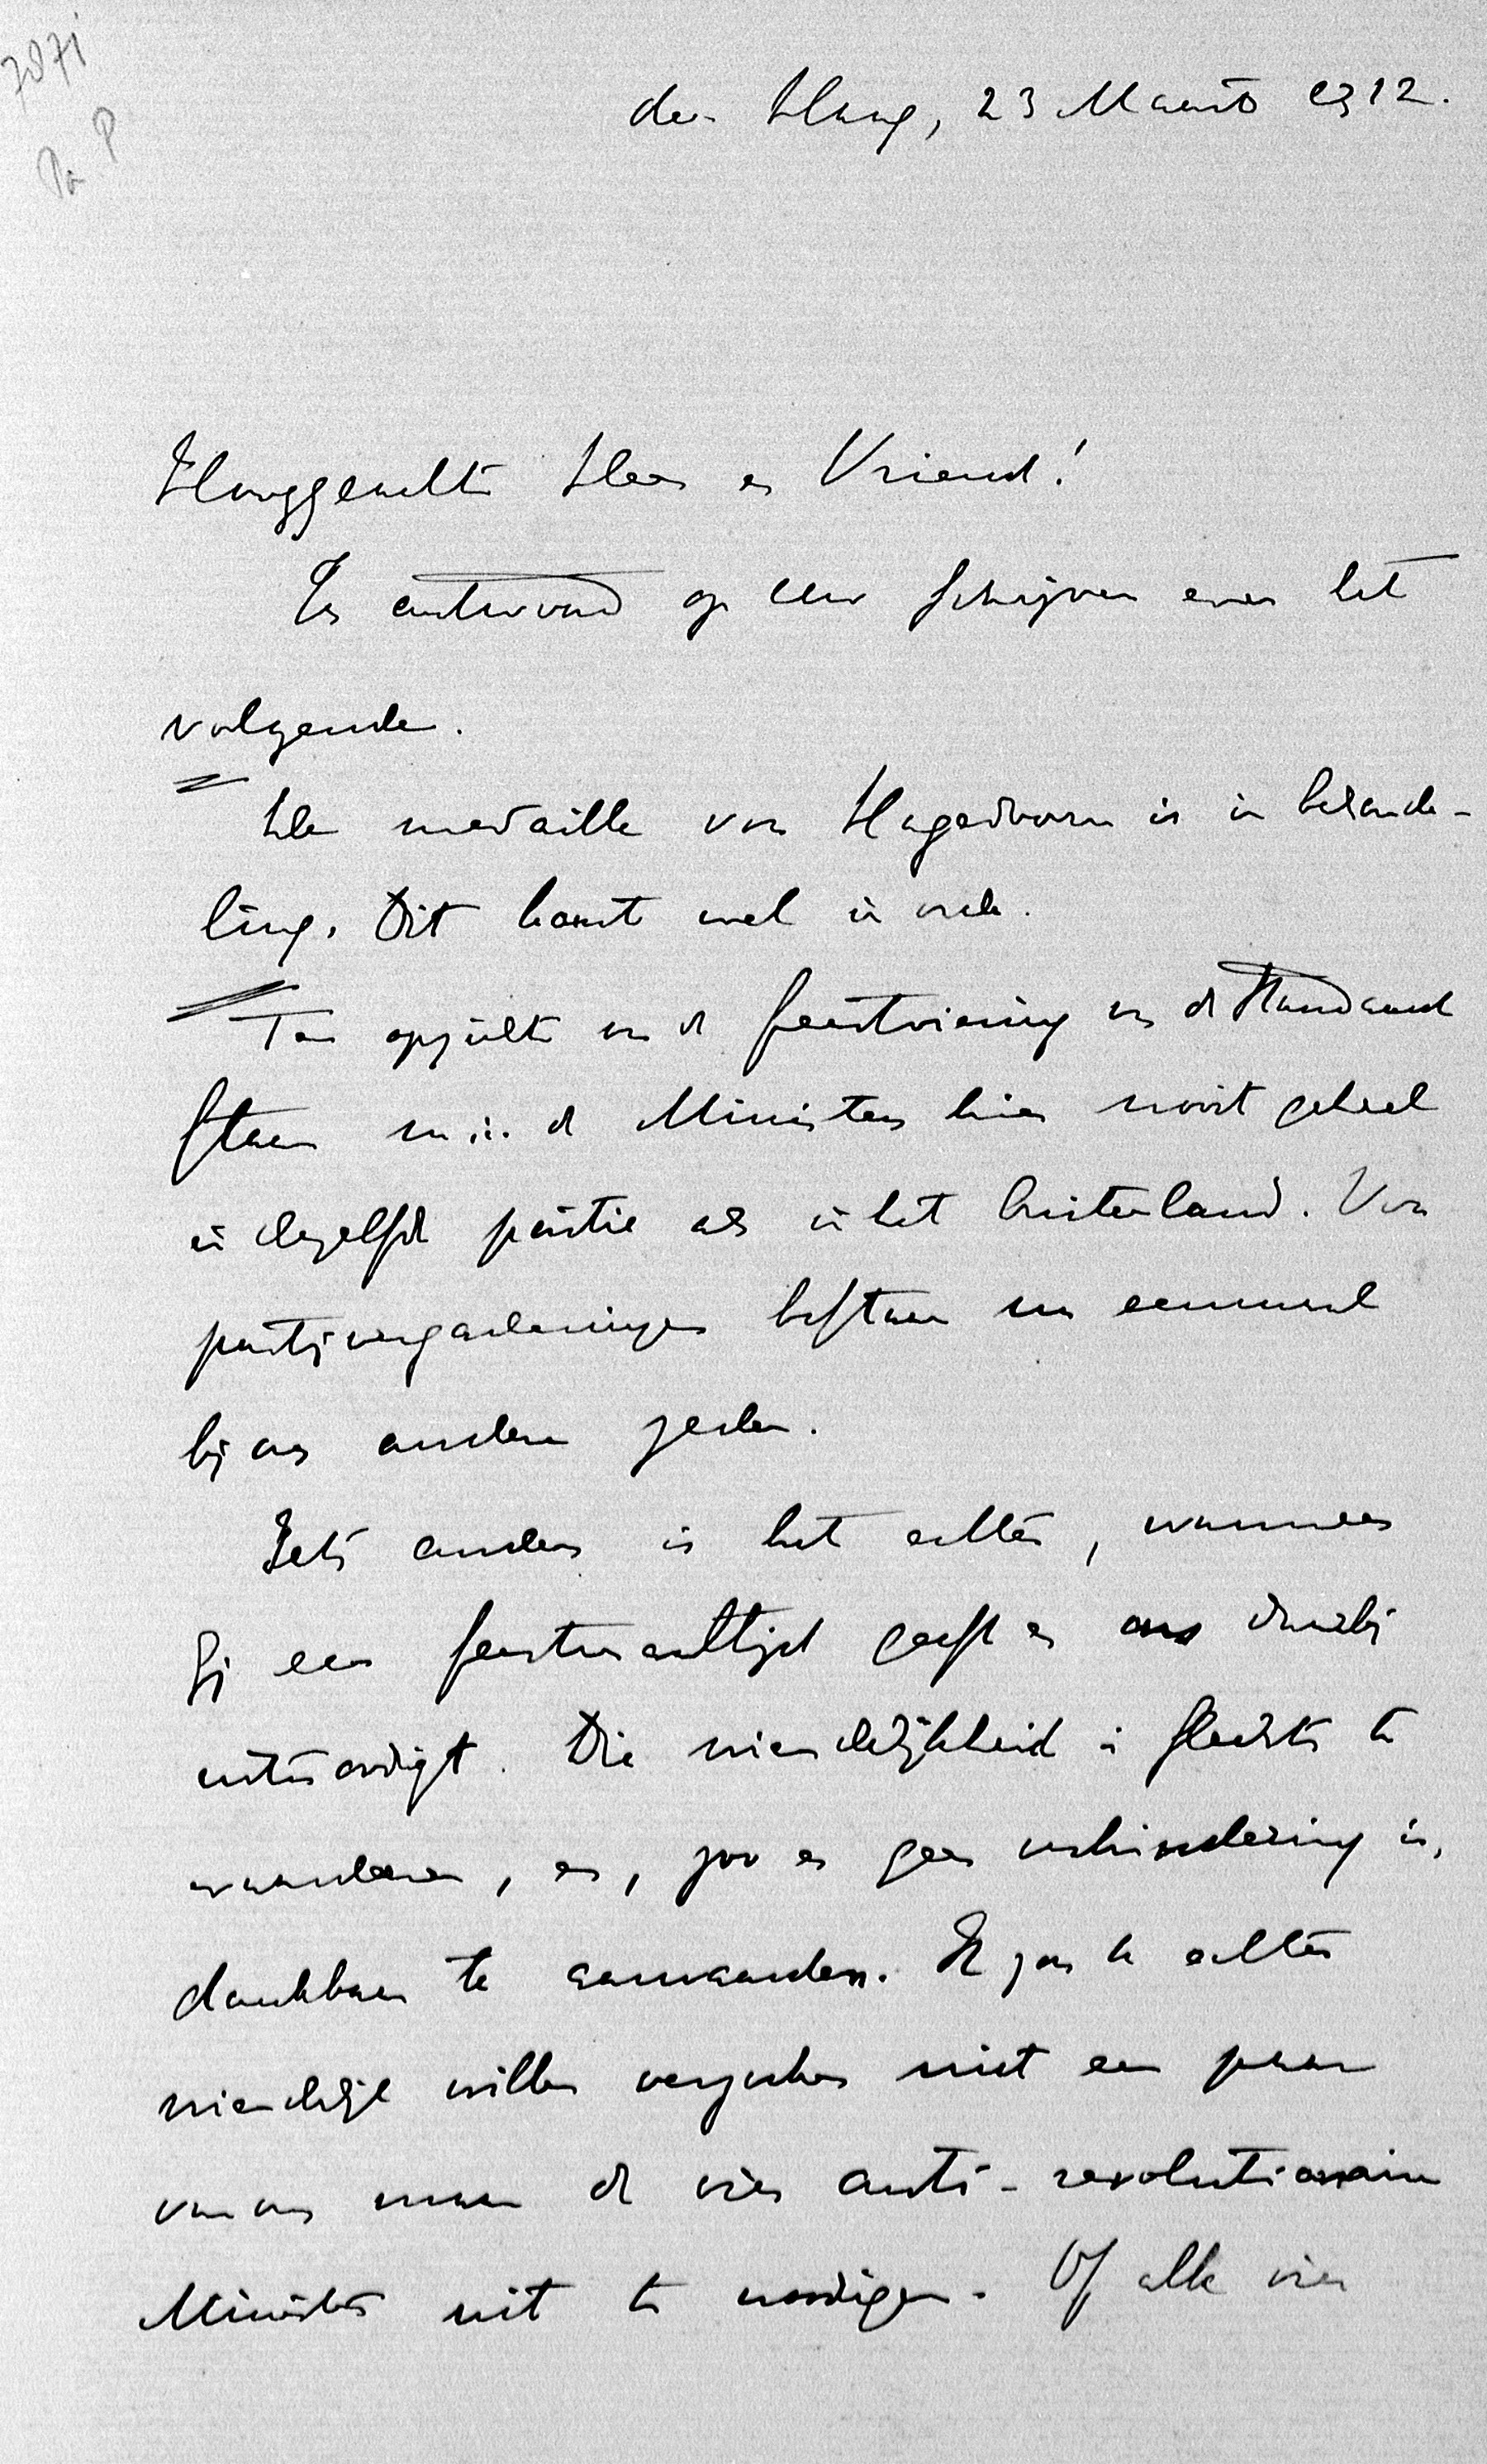 7871
Pa. P
den Haag, 23 Maart 1912.
Hooggeachte Heer en Vriend!
In antwoord op Uw schrijven even het
volgende.
De medaille voor Hagedoorn is in behande-
ling. Dit komt wel in orde.
Ten opzichte van de feestviering van de Standaard
staan m.i. de Ministers hier nooit geheel
in dezelfde positie als in het buitenland. Voor
partijvergaderingen bestaan nu eenmaal
bij ons andere zeden.
Iets anders is het echter, wanneer
Gij een feestmaaltijd geeft en ons daarbij
uitnoodigt. Die vriendelijkheid is slechts te
waardeeren, en, zoo er geen verhindering is,
dankbaar te aanvaarden. Ik zou U echter
vriendelijk willen verzoeken niet een paar
van ons maar de vier anti-revolutionaire
Ministers uit te noodigen. Of alle vier